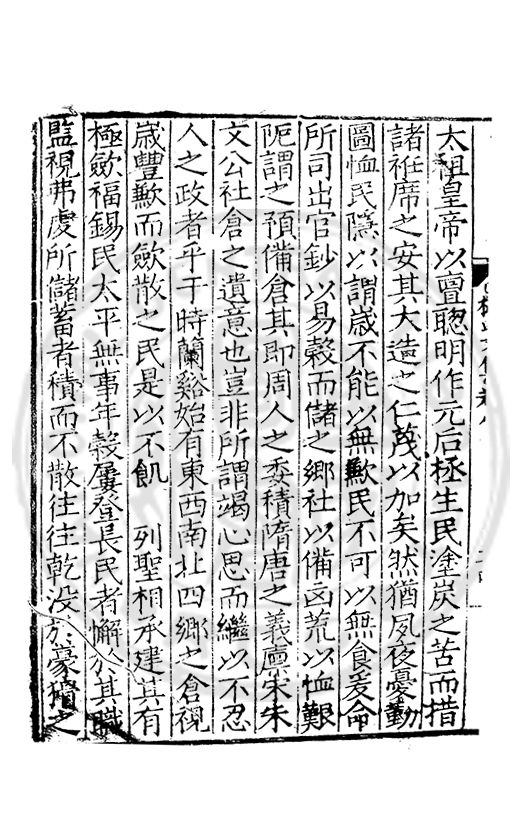 太祖皇帝以亶聰明作元后極生民塗炭之苦而措
諸袵席之安其大造之仁蔑以加矣然猶夙夜憂勤
圖恤民隱以謂歲不能以無歉民不可以無食爰命
所司出官鈔以易穀而儲之鄉社以備凶荒以恤艱
阨謂之預備倉其即周人之委積隋唐之義廩宋朱
文公社倉之遺意也豈非所謂竭心思而繼以不忍
人之政者乎于時蘭谿始有東西南北四鄉之倉視
歲豐歉而歛散之民是以不飢　列聖相承建其有
極歛福錫民太平無事年穀屢登長民者懈於其職
監視弗虔所儲蓄者積而不散往往乾没於豪猾之